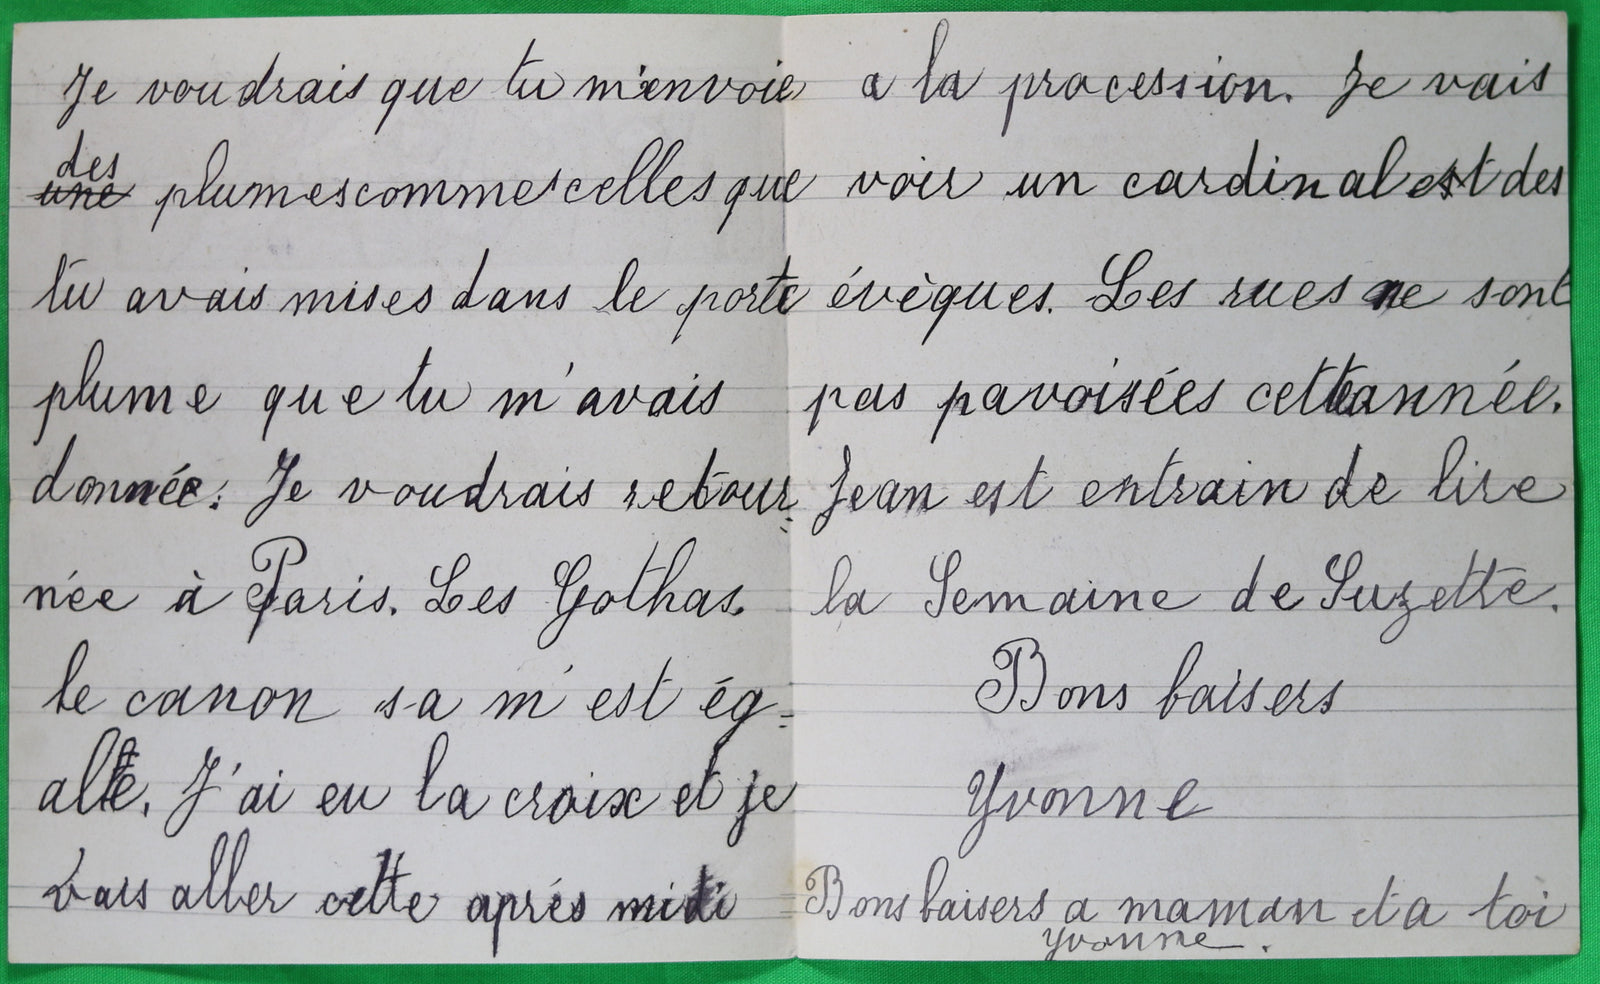 Je voudrais que tu m'envoie
des
une plumes comme celles que
tu avais mises dans le porte
plume que tu m'avais
donnée. Je voudrais retour=
née à Paris. Les Gothas.
le canon sa m'est ég=
alle. J'ai eu la croix et je
vais aller cette aprés midi
a la procession. Je vais
voir un cardinal et des
évèques. Les rues ne sont
pas pavoisées cette année.
Jean est entrain de lire
la Semaine de Suzette.
Bons baisers
Yvonne
Bons baisers a maman et a toi
Yvonne.